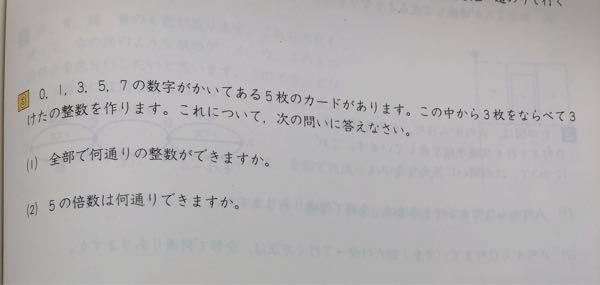 3 0, 1, 3, 5, 7の数字がかいてある5枚のカードがあります。この中から3枚をならべて3
けたの整数を作ります。これについて、次の問いに答えなさい。
(1) 全部で何通りの整数ができますか。
(2) 5の倍数は何通りできますか。